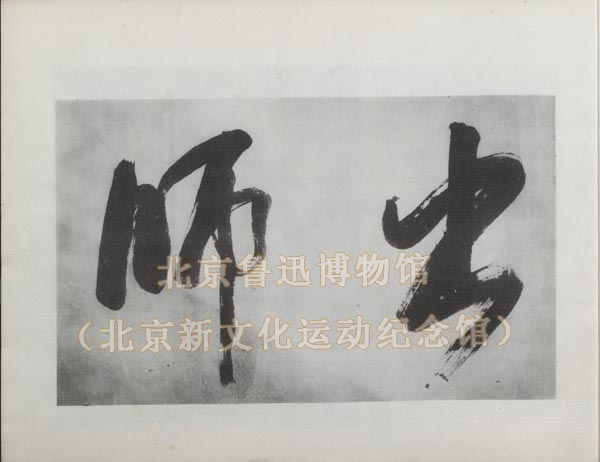 出师
北京鲁迅博物馆
（北京新文化运动纪念馆）